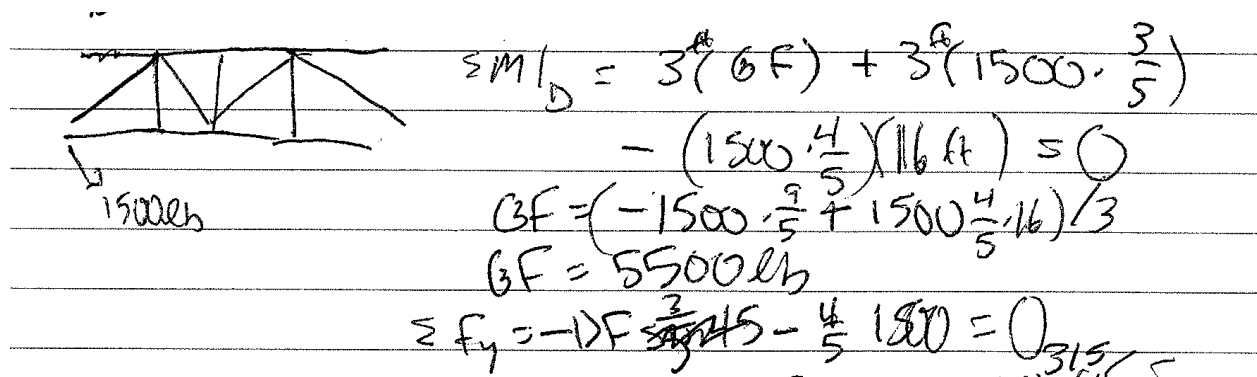 ΣM|_D = 3^ft(GF) + 3^ft(1500 · 3/5)
- (1500 · 4/5)(16 ft) = 0
1500lb
GF = (-1500 · 9/5 + 1500 4/5 · 16)/3
GF = 5500 lb
ΣFy = -DF - 4/5 1500 = 0